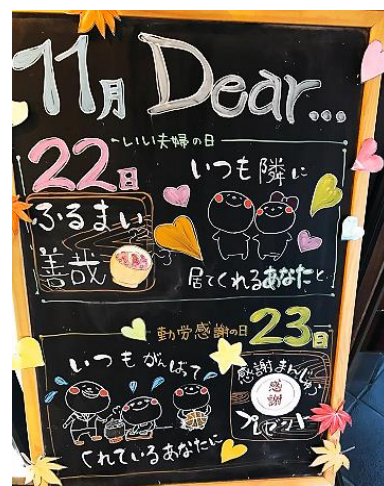 11月 Dear...
いい夫婦の日
22日
いつも隣に
ふるまい
善哉
居てくれるあなたと
勤労感謝の日
23日
いつもがんばって
くれているあなたに
感謝まんじゅう
感謝
プレゼント